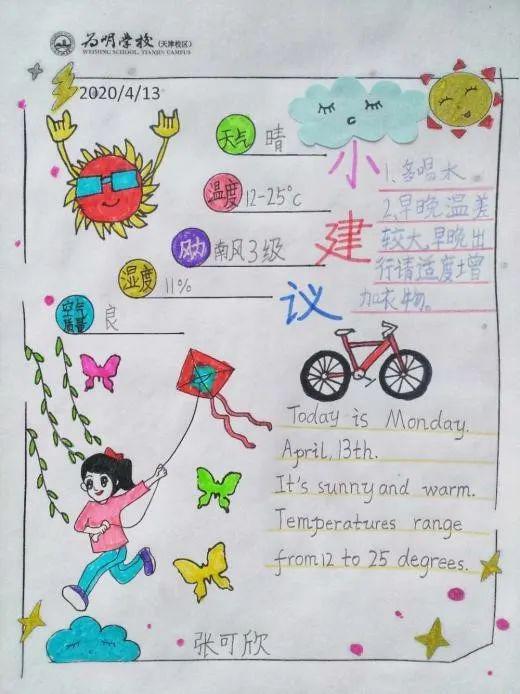 为明学校(天津校区)
WEISHING SCHOOL, TIANJIN CAMPUS
2020/4/13
天气 晴
温度 12-25°c
风力 南风3级
湿度 11%
空气质量 良
小建议
1.多喝水
2.早晚温差
较大,早晚出
行请适度增
加衣物。
Today is Monday.
April,13th.
It's sunny and warm.
Temperatures range
from 12 to 25 degrees.
张可欣